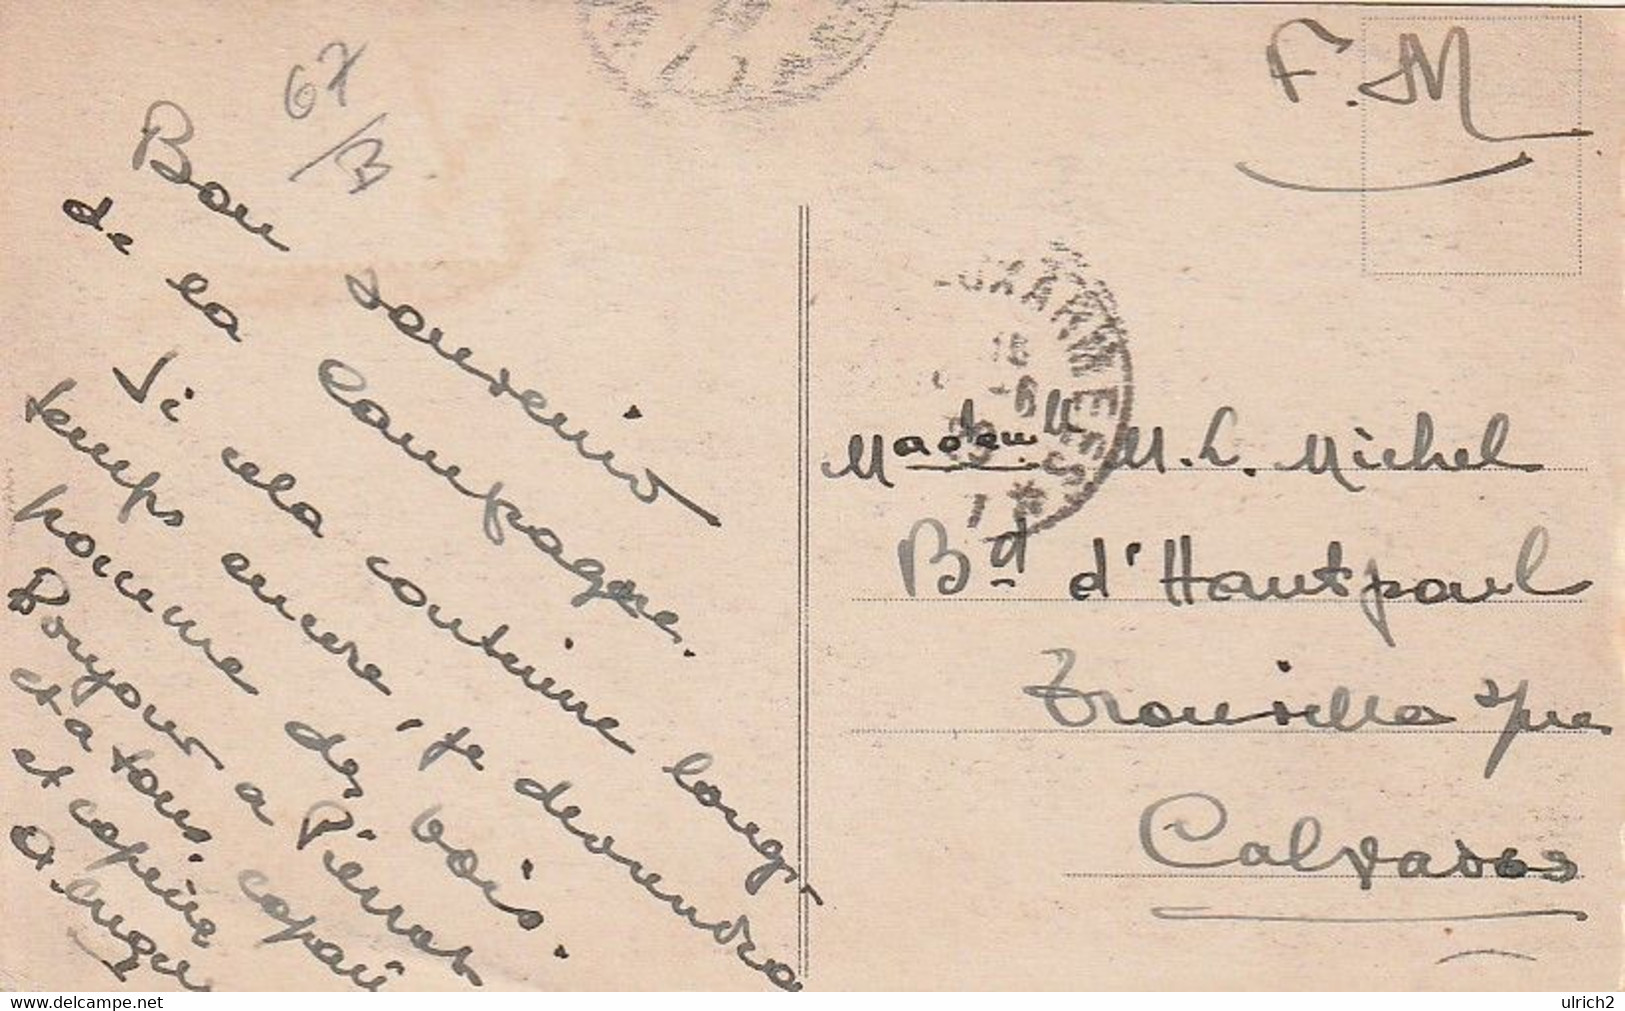 67
/B
Bon souvenir
de la Campagne.
Si cela continue long-
temps encore, je deviendrai
homme des bois.
Bonjour a Pierrot
et a tous, copain
et copine
F.M
UXARMEES
18
-6
*
Madame M. L. Michel
Bd d'Hautpoul
Trouville s/mer
Calvados
www.delcampe.net
ulrich2